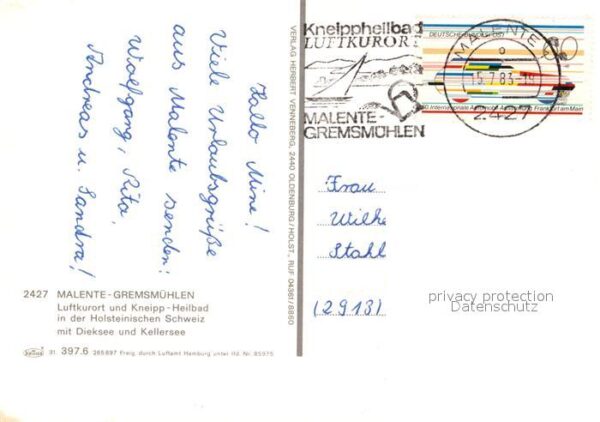 Hallo Mine!
Viele Urlaubsgrüße
aus Malente senden:
Wolfgang, Rita,
Andreas u. Sandra!
2427 MALENTE-GREMSMÜHLEN
Luftkurort und Kneipp-Heilbad
in der Holsteinischen Schweiz
mit Dieksee und Kellersee
31 397.6 265697 Freig. durch Luftamt Hamburg unter lfd. Nr. 85975
VERLAG HERBERT VENNEBERG, 2440 OLDENBURG/HOLST., RUF 04361/8860
Kneippheilbad
LUFTKURORT
MALENTE-
GREMSMÜHLEN
MALENTE
15.7.83
2427
DEUTSCHE BUNDESPOST
50. Internationale Frankfurt am Main
Frau
Wilke
Stahl
(2913)
privacy protection
Datenschutz